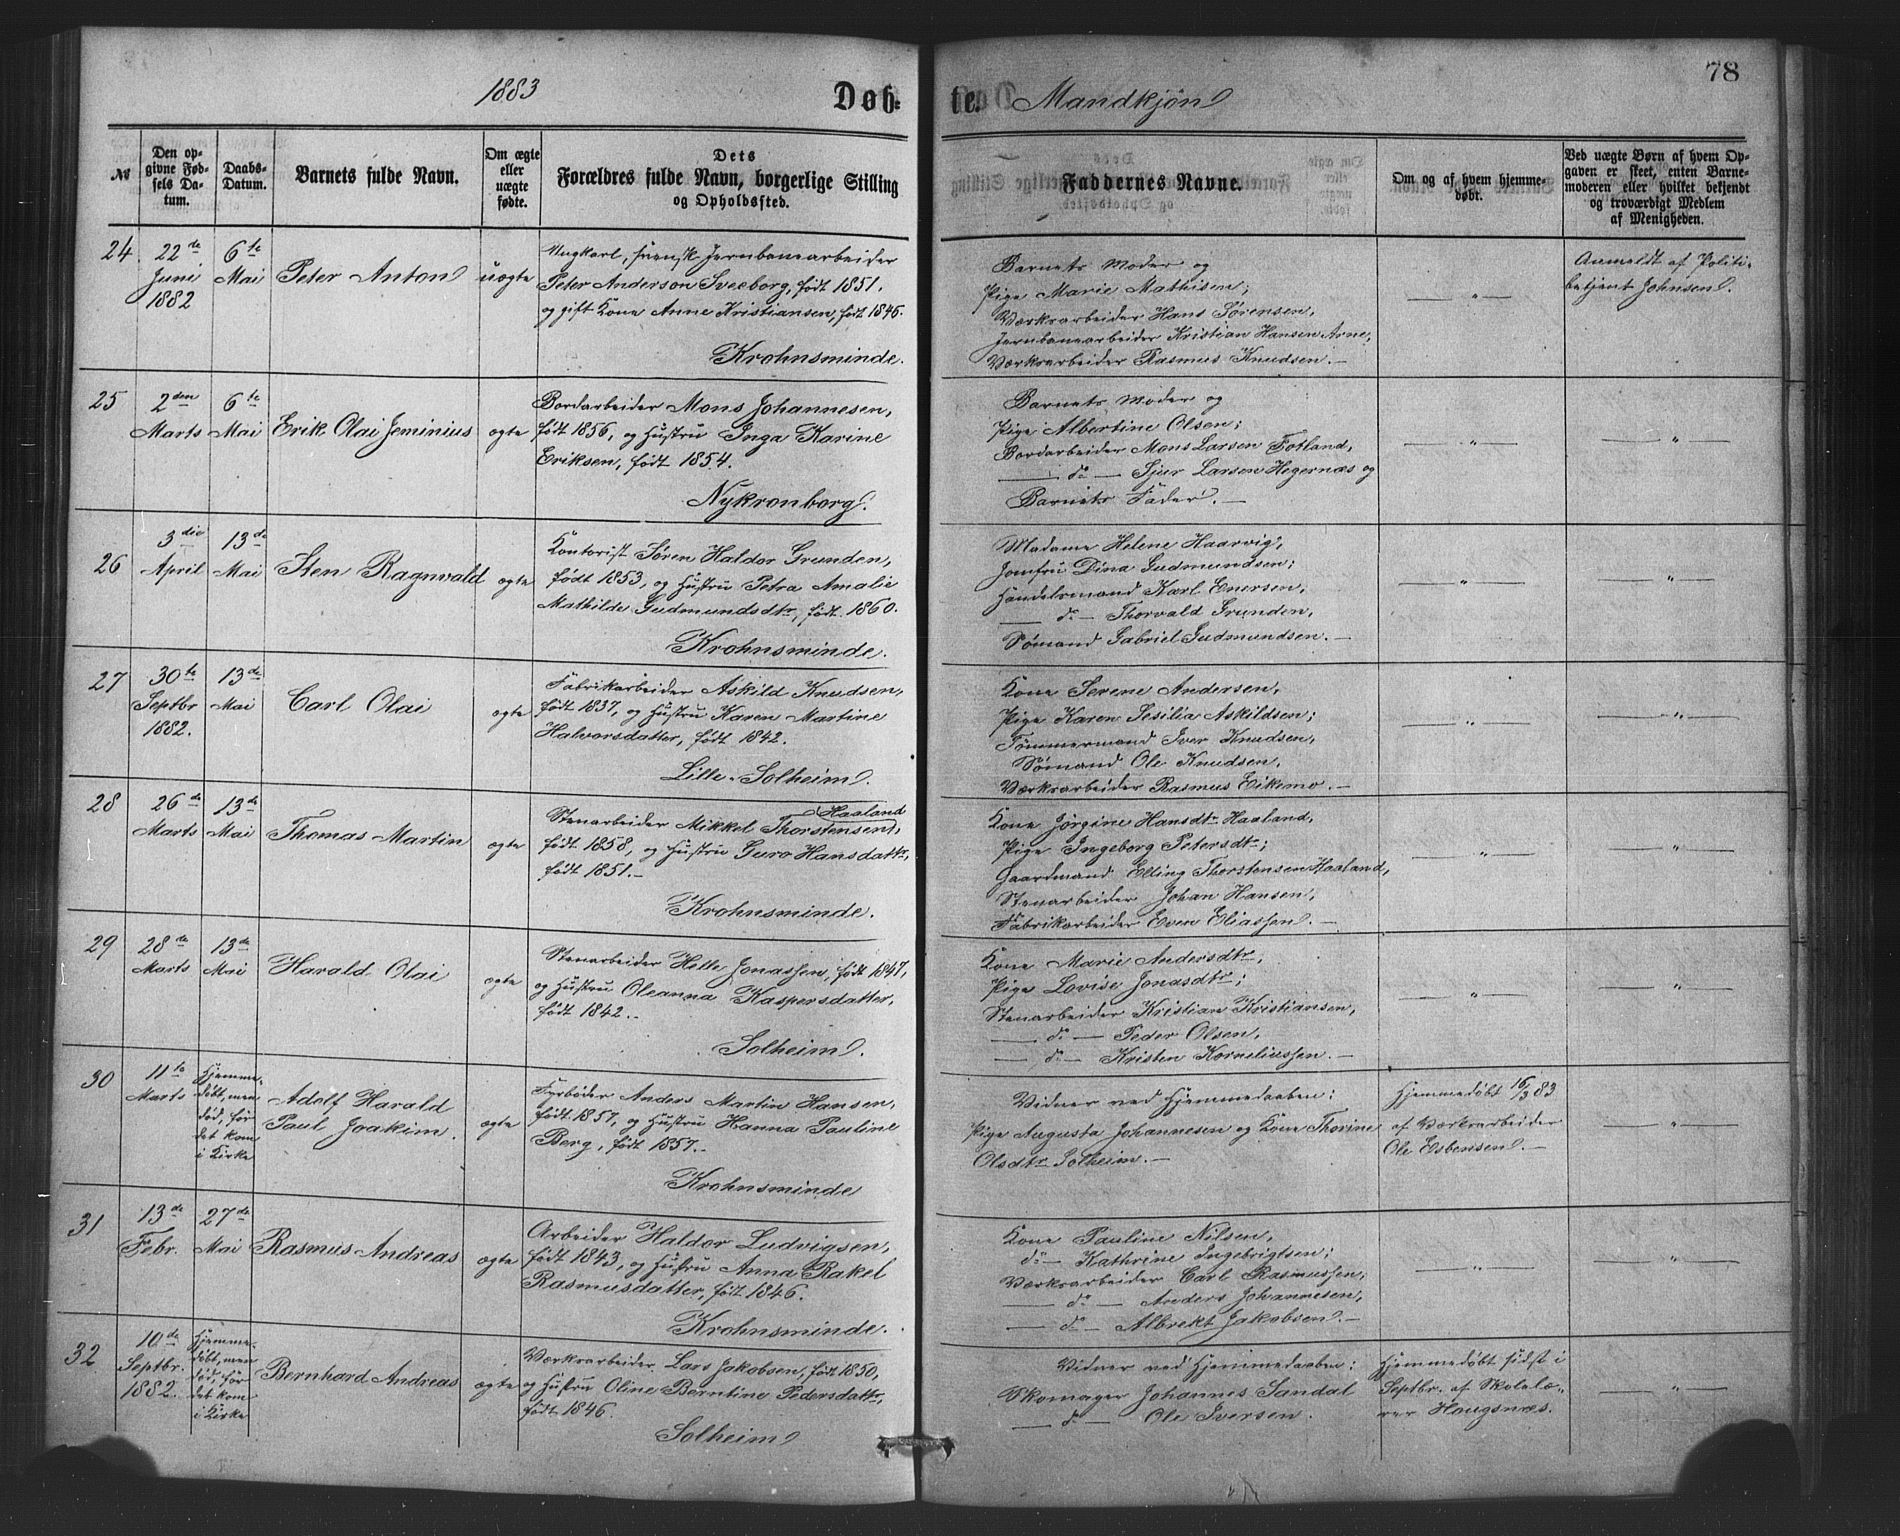 1883
Døb-
te.
Mandkjøn
78
№
Den op-
givne Fød-
sels Da-
tum.
Daabs-
Datum.
Barnets fulde Navn.
Om ægte
eller
uægte
fødte.
Dets
Forældres fulde Navn, borgerlige Stilling
og Opholdssted.
Faddernes Navne.
Om og af hvem hjemme-
døbt.
Ved uægte Børn af hvem Op-
gaven er skeet, enten Barne-
moderen eller hvilket bekjendt
og troværdigt Medlem
af Menigheden.
24
22de
Juni
1882
6te
Mai
Peter Anton
uægte
Ungkarl, svensk Jernbanearbeider
Peter Anderson Sveeborg, født 1851,
og gift Kone Anne Kristiansen, født 1846.
Krohnsminde.
Barnets Moder og
Pige Marie Mathisen;
Værksarbeider Hans Sørensen,
Jernbanearbeider Kristian Hansen Arne,
Værksarbeider Rasmus Knudsen. —
— " —
Anmeldt af Politi-
betjent Johnsen.
25
2den
Marts
6te
Mai
Erik Olai Jeminius
ægte
Bordarbeider Mons Johannesen,
født 1856, og Hustru Inga Karine
Eriksen, født 1854.
Nykronborg.
Barnets Moder og
Pige Albertine Olsen;
Bordarbeider Mons Larsen Fotland,
— do — Sjur Larsen Hegernæs og
Barnets Fader. —
— " —
— " —
26
3die
April
13de
Mai
Sten Ragnvald
ægte
Kontorist Søren Haldor Grunden,
født 1853, og Hustru Petra Amalie
Mathilde Gudmundsdtr, født 1860.
Krohnsminde.
Madame Helene Haarvig,
Jomfru Dina Gudmundsen;
Handelsmand Karl Enersen,
— do — Thorvald Grunden,
Sømand Gabriel Gudmundsen. —
— " —
— " —
27
30te
Septbr
1882.
13de
Mai
Carl Olai
ægte
Fabrikarbeider Askild Knudsen,
født 1837, og Hustru Karen Martine
Halvorsdatter, født 1842.
Lille-Solheim.
Kone Serene Andersen,
Pige Karen Sesilia Askildsen;
Tømmermand Iver Knudsen,
Sømand Ole Knudsen,
Værksarbeider Rasmus Eikemo. —
— " —
— " —
28
26de
Marts
13de
Mai
Thomas Martin
ægte
Haaland
Stenarbeider Mikkel Thorstensen,
født 1858, og Hustru Guro Hansdattr,
født 1851. —
Krohnsminde.
Kone Jørgine Hansdtr Haaland,
Pige Ingeborg Petersdtr;
Gaardmand Elling Thorstensen Haaland,
Stenarbeider Johan Hansen,
Fabrikarbeider Even Eliassen. —
— " —
— " —
29
28de
Marts
13de
Mai
Harald Olai
ægte
Stenarbeider Helle Jonassen, født 1847,
og Hustru Oleanna Kaspersdatter,
født 1842. —
Solheim.
Kone Marie Andersdtr,
Pige Lovise Jonasdtr;
Stenarbeider Kristian Kristiansen,
— do — Peder Olsen,
— do — Kristen Korneliussen. —
— " —
— " —
30
11te
Marts
Hjemme-
døbt, men
død, før
det kom
i Kirke
Adolf Harald
Paul Joakim.
ægte
Fyrbøder Anders Martin Hansen,
født 1857, og Hustru Hanna Pauline
Berg, født 1857. —
Krohnsminde
Vidner ved Hjemmedaaben:
Pige Augusta Johannesen og Kone Thorine
Olsdtr Solheim. —
Hjemmedøbt 16/3 83
af Værksarbeider
Ole Esbensen.
— " —
31
13de
Febr.
27de
Mai
Rasmus Andreas
ægte
Arbeider Haldor Ludvigsen,
født 1843, og Hustru Anna Rakel
Rasmusdatter, født 1846.
Krohnsminde.
Kone Pauline Nilsen,
do — Kathrine Ingebrigtsen;
Værksarbeider Carl Rasmussen,
— do — Anders Johannesen,
— do — Albrekt Jakobsen. —
— " —
— " —
32
10de
Septbr.
1882.
Hjemme-
døbt, men
død, før
det kom
i Kirke
Bernhard Andreas
ægte
Værksarbeider Lars Jakobsen, født 1850,
og Hustru Oline Berntine Pedersdattr,
født 1846.
Solheim
Vidner ved Hjemmedaaben:
Skomager Johannes Sandal
— do — Ole Iversen.
Hjemmedøbt sidst i
Septbr. af Skolelæ-
rer Haugsnæs.
— " —